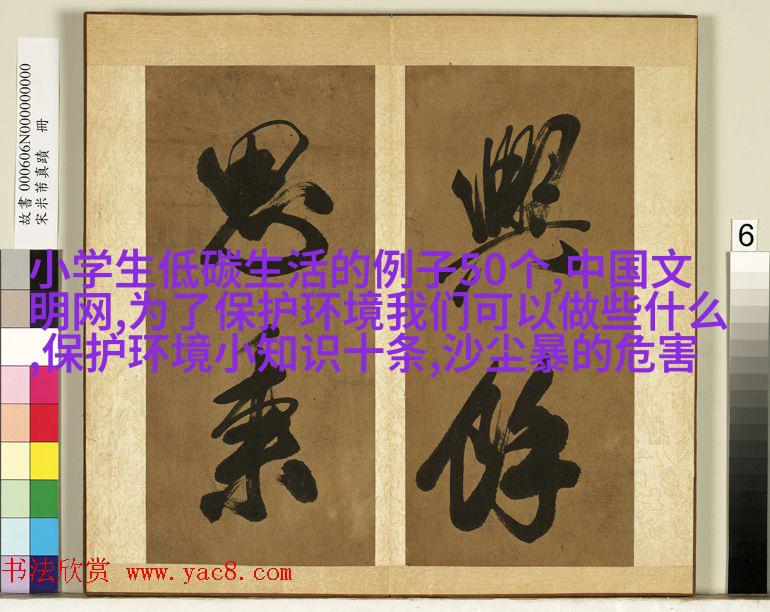 故書 000606N000000000
宋米芾真蹟 冊
小学生低碳生活的例子50个,中国文
明网,为了保护环境我们可以做些什么
,保护环境小知识十条,沙尘暴的危害
餘
6
书法欣赏 www.yac8.com